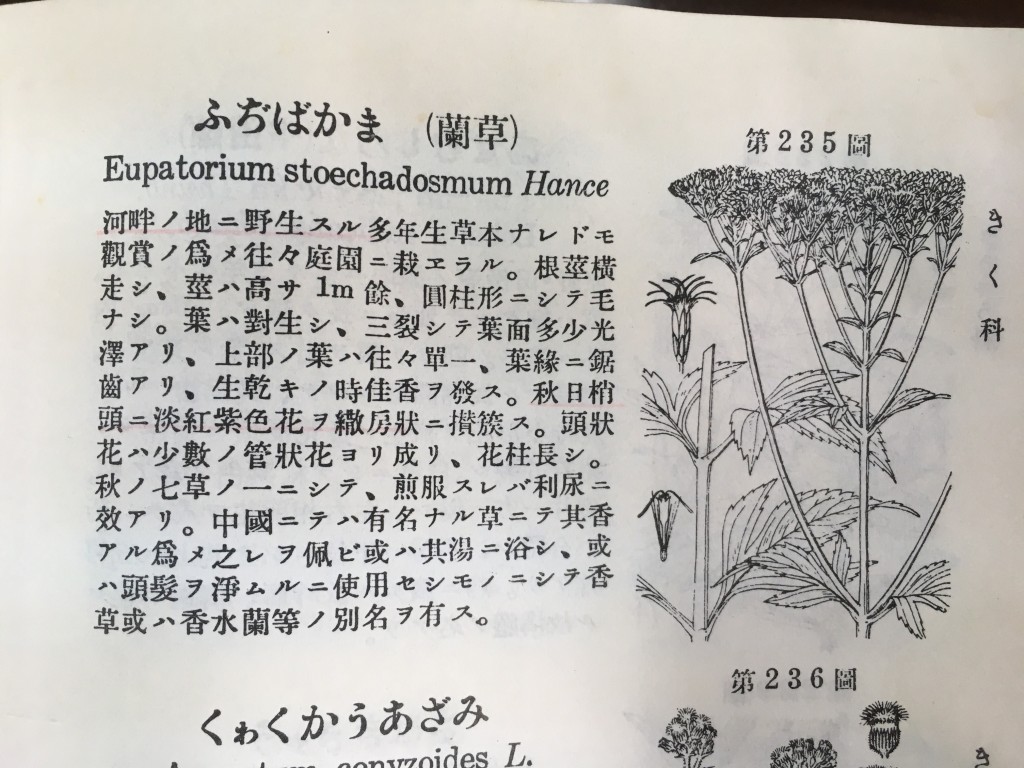 ふぢばかま (蘭草)
Eupatorium stoechadosmum Hance
河畔ノ地ニ野生スル多年生草本ナレドモ
觀賞ノ爲メ往々庭園ニ栽ヱラル。根莖橫
走シ、莖ハ高サ 1m 餘、圓柱形ニシテ毛
ナシ。葉ハ對生シ、三裂シテ葉面多少光
澤アリ、上部ノ葉ハ往々單一、葉緣ニ鋸
齒アリ、生乾キノ時佳香ヲ發ス。秋日梢
頭ニ淡紅紫色花ヲ繖房狀ニ攅簇ス。頭狀
花ハ少數ノ管狀花ヨリ成リ、花柱長シ。
秋ノ七草ノ一ニシテ、煎服スレバ利尿ニ
效アリ。中國ニテハ有名ナル草ニテ其香
アル爲メ之レヲ佩ビ或ハ其湯ニ浴シ、或
ハ頭髮ヲ淨ムルニ使用セシモノニシテ香
草或ハ香水蘭等ノ別名ヲ有ス。
第235圖
きく科
くゎくかうあざみ
conyzoides L.
第236圖
き